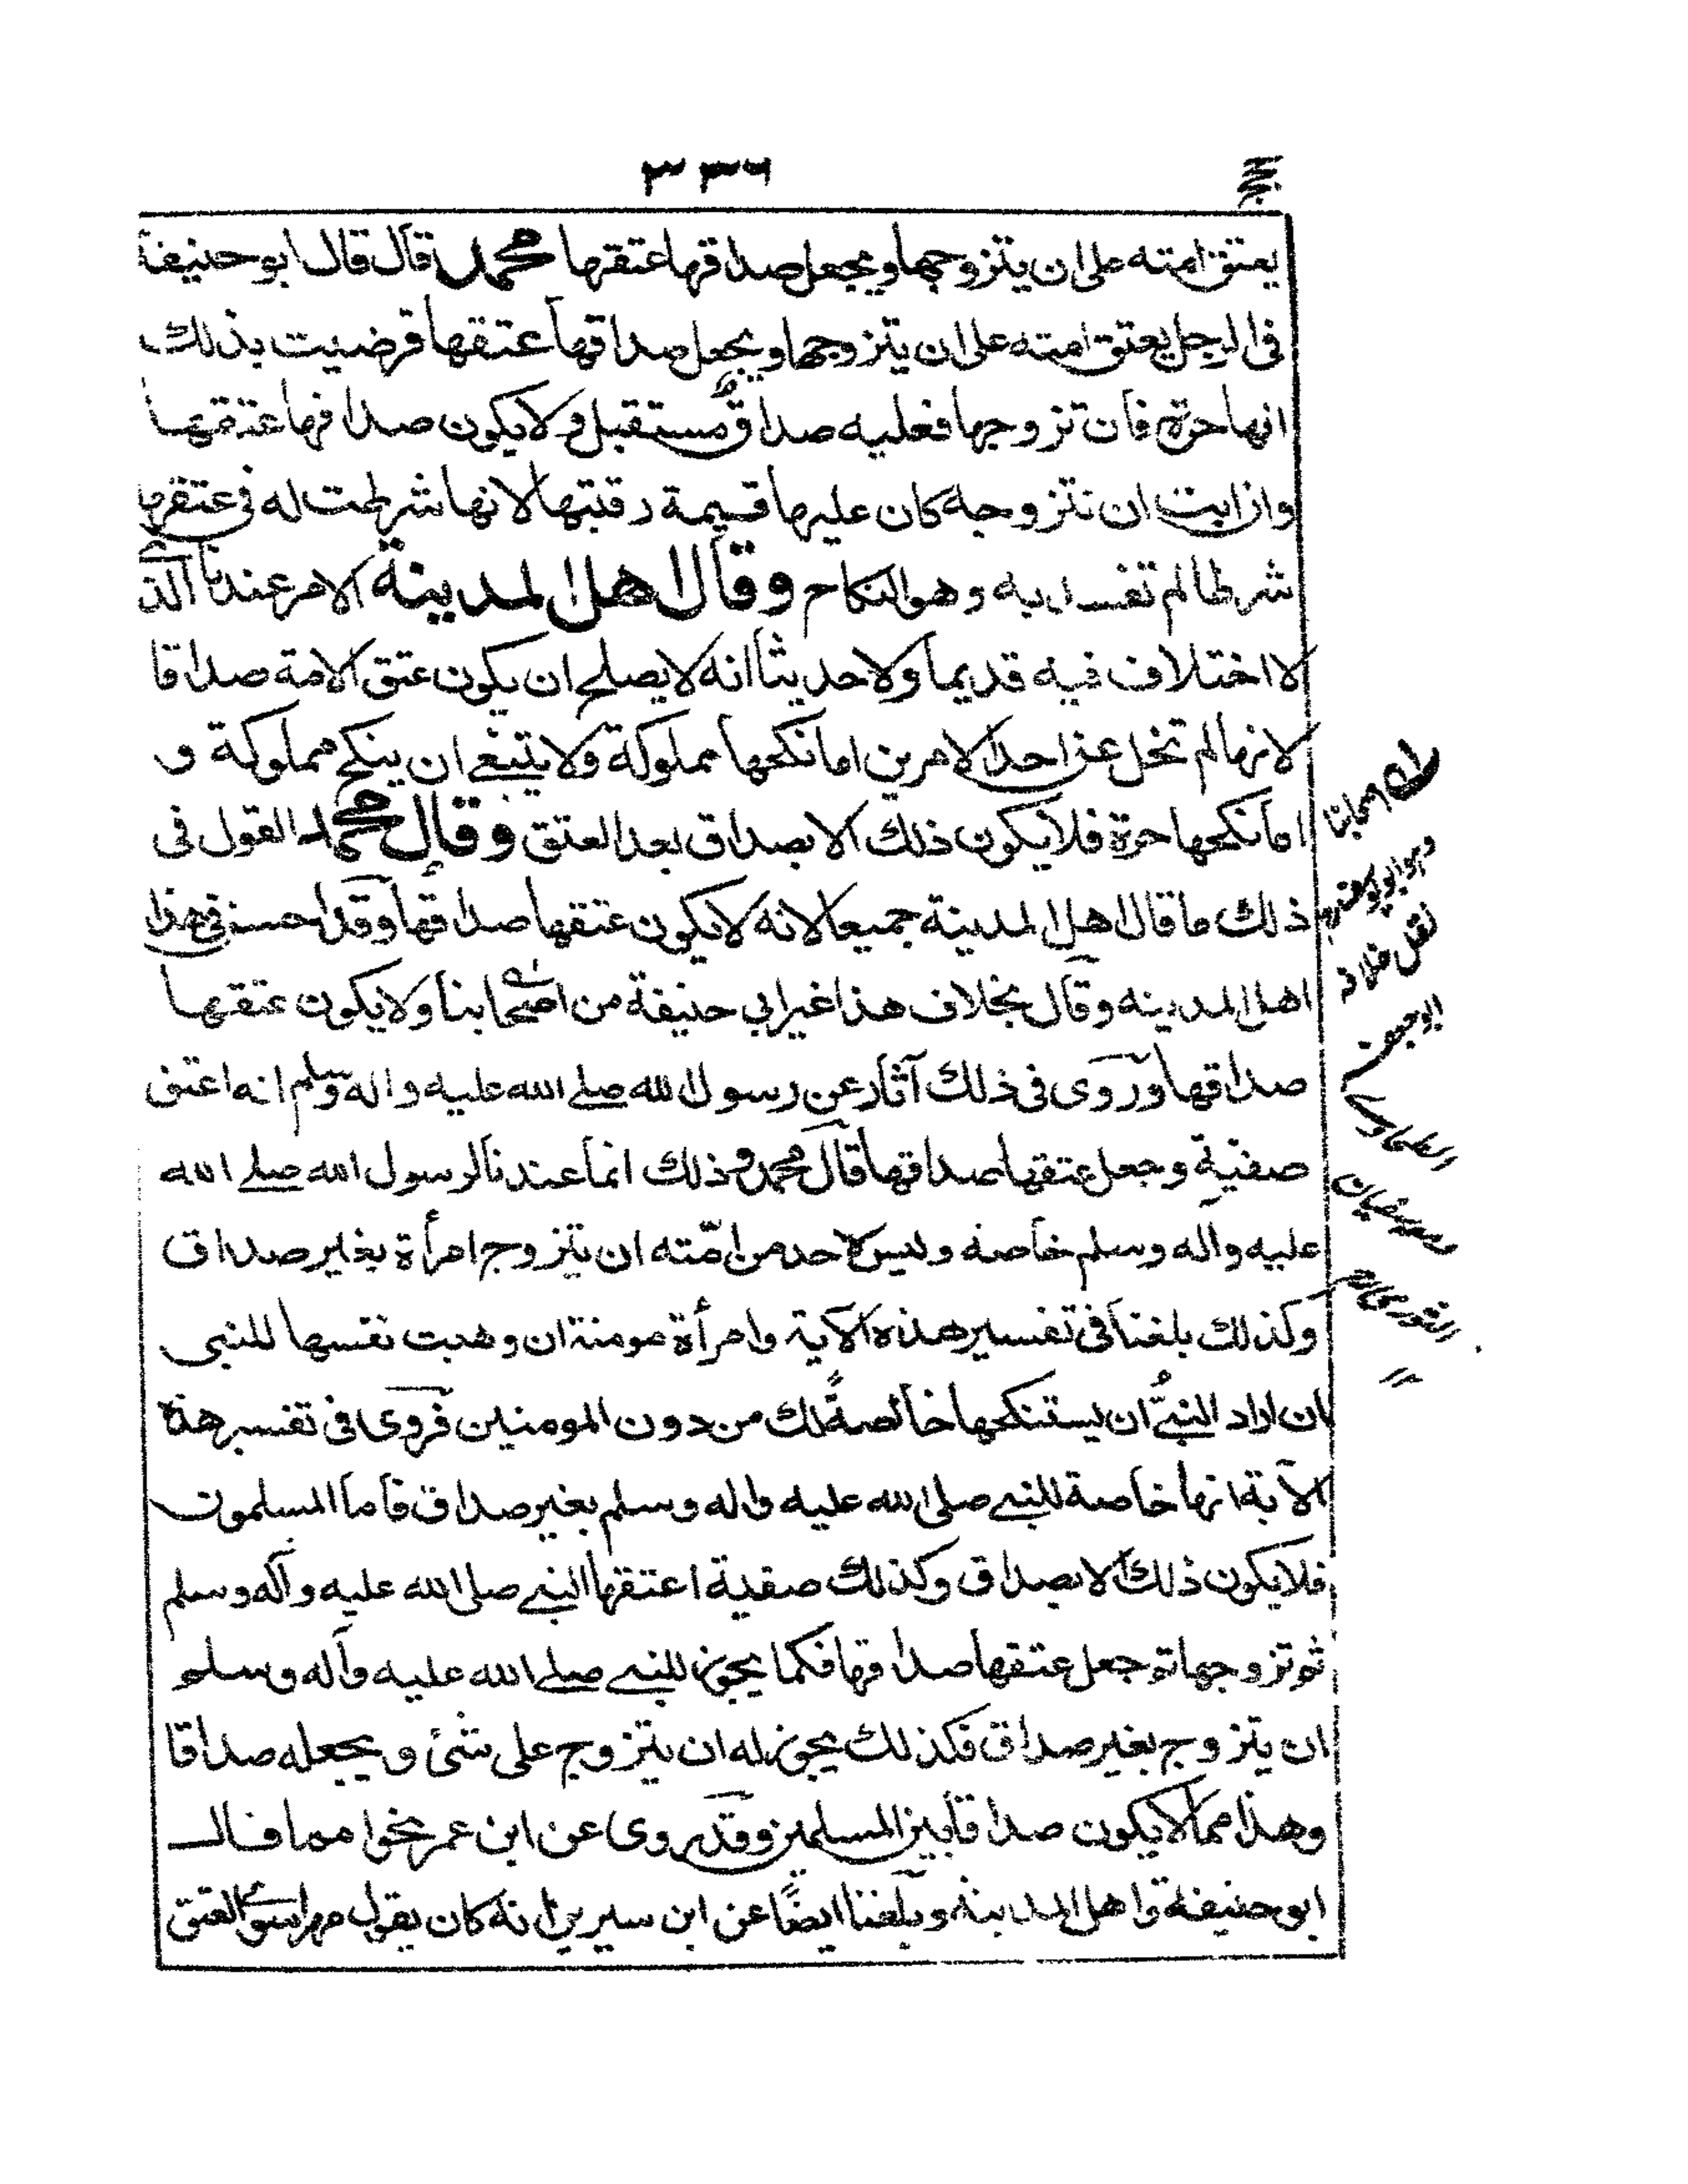 ٣٣٦
يعتق امته على ان يتزوجها ويجعل صداقها عتقها محمد قال قال ابو حنيفة
فى الرجل يعتق امته على ان يتزوجها ويجعل صداقها عتقها فرضيت بذلك
انها حرة فان تزوجها فعليه صداق مستقبل ولا يكون صداقها عتقها
وان ابت ان تتزوجه كان عليها قيمة رقبتها لانها شرطت له فى عتقها
شرطا لم تفسد به وهو النكاح وقال اهل المدينة الامر عندنا الذى
لا اختلاف فيه قديما ولا حديثا انه لا يصلح ان يكون عتق الامة صداقا
لانها لم تخل عن احد الامرين اما نكحها مملوكة ولا ينبغى ان ينكح مملوكة و
اما نكحها حرة فلا يكون ذلك الا بصداق بعد العتق وقال محمد القول فى
ذلك ما قال اهل المدينة جميعا لانه لا يكون عتقها صداقها وقد احسن فى هذا
اهل المدينه وقال بخلاف هذا غير ابي حنيفة من اصحابنا ولا يكون عتقها
صداقها وروى فى ذلك آثار عن رسول الله صلى الله عليه واله وسلم انه اعتق
صفية وجعل عتقها صداقها قال محمد وذلك انما عندنا لرسول الله صلى الله
عليه وآله وسلم خاصة وليس لاحد من امّته ان يتزوج امرأة بغير صداق
وكذلك بلغنا فى تفسير هذه الآية وامرأة مومنة ان وهبت نفسها للنبى
ان اراد النبىُّ ان يستنكحها خالصةً لك من دون المومنين فروى فى تفسير هذه
الآية انها خاصة للنبى صلى الله عليه واله وسلم بغير صداق فاما المسلمون
فلا يكون ذلك الا بصداق وكذلك صفية اعتقها النبى صلى الله عليه وآله وسلم
ثم تزوجها ثم جعل عتقها صداقها فكما يجوز للنبى صلى الله عليه وآله وسلم
ان يتزوج بغير صداق فكذلك يجوز له ان يتزوج على شئ ويجعله صداقا
وهذا مما لا يكون صداقا بين المسلمين وقد روى عن ابن عمر نحوا مما قال
ابو حنيفة واهل المدينة وبلغنا ايضًا عن ابن سيرين انه كان يقول مهرا سوى العتق
اى اصحابنا
وهو ابو يوسف
نقل خلافه
ابو جعفر
الطحاوى
وسفيان
الثورى